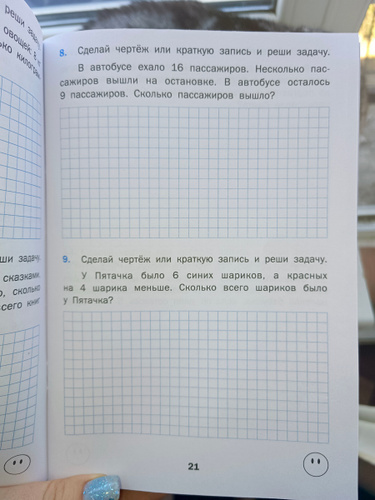 реши зада
овощей: 8
ько килограм
8. Сделай чертёж или краткую запись и реши задачу.
В автобусе ехало 16 пассажиров. Несколько пас-
сажиров вышли на остановке. В автобусе осталось
9 пассажиров. Сколько пассажиров вышло?
ши задачу.
сказками
о, сколько
сего книг
9. Сделай чертёж или краткую запись и реши задачу.
У Пятачка было 6 синих шариков, а красных
на 4 шарика меньше. Сколько всего шариков было
у Пятачка?
21